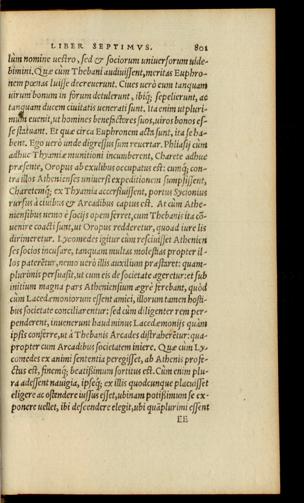 LIBER SEPTIMVS. 801
lùm nomine uestro, sed & sociorum uniuersorum uide-
bimini. Quæ cùm Thebani audiuissent, meritas Euphro-
nem pœnas luisse decreuerunt. Ciues uerò eum tanquam
uirum bonum in forum detulerunt, ibiq; sepelierunt, ac
tanquam ducem ciuitatis uenerati sunt. Ita enim ut pluri-
mùm euenit, ut homines benefictores suos, uiros bonos es-
se statuant. Et quæ circa Euphronem acta sunt, ita se ha-
bent. Ego uerò unde digressus sum reuertar. Phliasij cùm
adhuc Thyamiæ munitioni incumberent, Charete adhuc
præsente, Oropus ab exulibus occupatus est: cumq; con-
tra illos Athenienses uniuersi expeditionem sumpsissent,
Charetemq; ex Thyamia accersiuissent, portus Sycionius
rursus à ciuibus & Arcadibus captus est. At cùm Athe-
niensibus nemo è socijs opem ferret, cum Thebanis ita cō-
uenire coacti sunt, ut Oropus redderetur, quoad iure lis
dirimeretur. Lycomedes igitur cùm resciuisset Athenien
ses socios incusare, tanquam multas molestias propter il-
los paterētur, nemo uerò illis auxilium præstaret: quam-
plurimis persuasit, ut cum eis de societate ageretur: et sub
initium magna pars Atheniensium ægrè ferebant, quòd
cùm Lacedæmoniorum essent amici, illorum tamen hosti-
bus societate conciliarentur: sed cùm diligenter rem per-
penderent, inuenerunt haud minus Lacedæmonijs quàm
ipsis conferre, ut à Thebanis Arcades distraherētur: qua-
propter cum Arcadibus societatem iniere. Quæ cùm Ly-
comedes ex animi sententia peregisset, ab Athenis profe-
ctus est, finemq; beatissimum sortitus est. Cùm enim plu-
ra adessent nauigia, ipseq; ex illis quodcunque placuisset
eligere ac ostendere iussus esset, ubinam potissimum se ex-
ponere uellet, ibi descendere elegit, ubi quāplurimi essent
EE